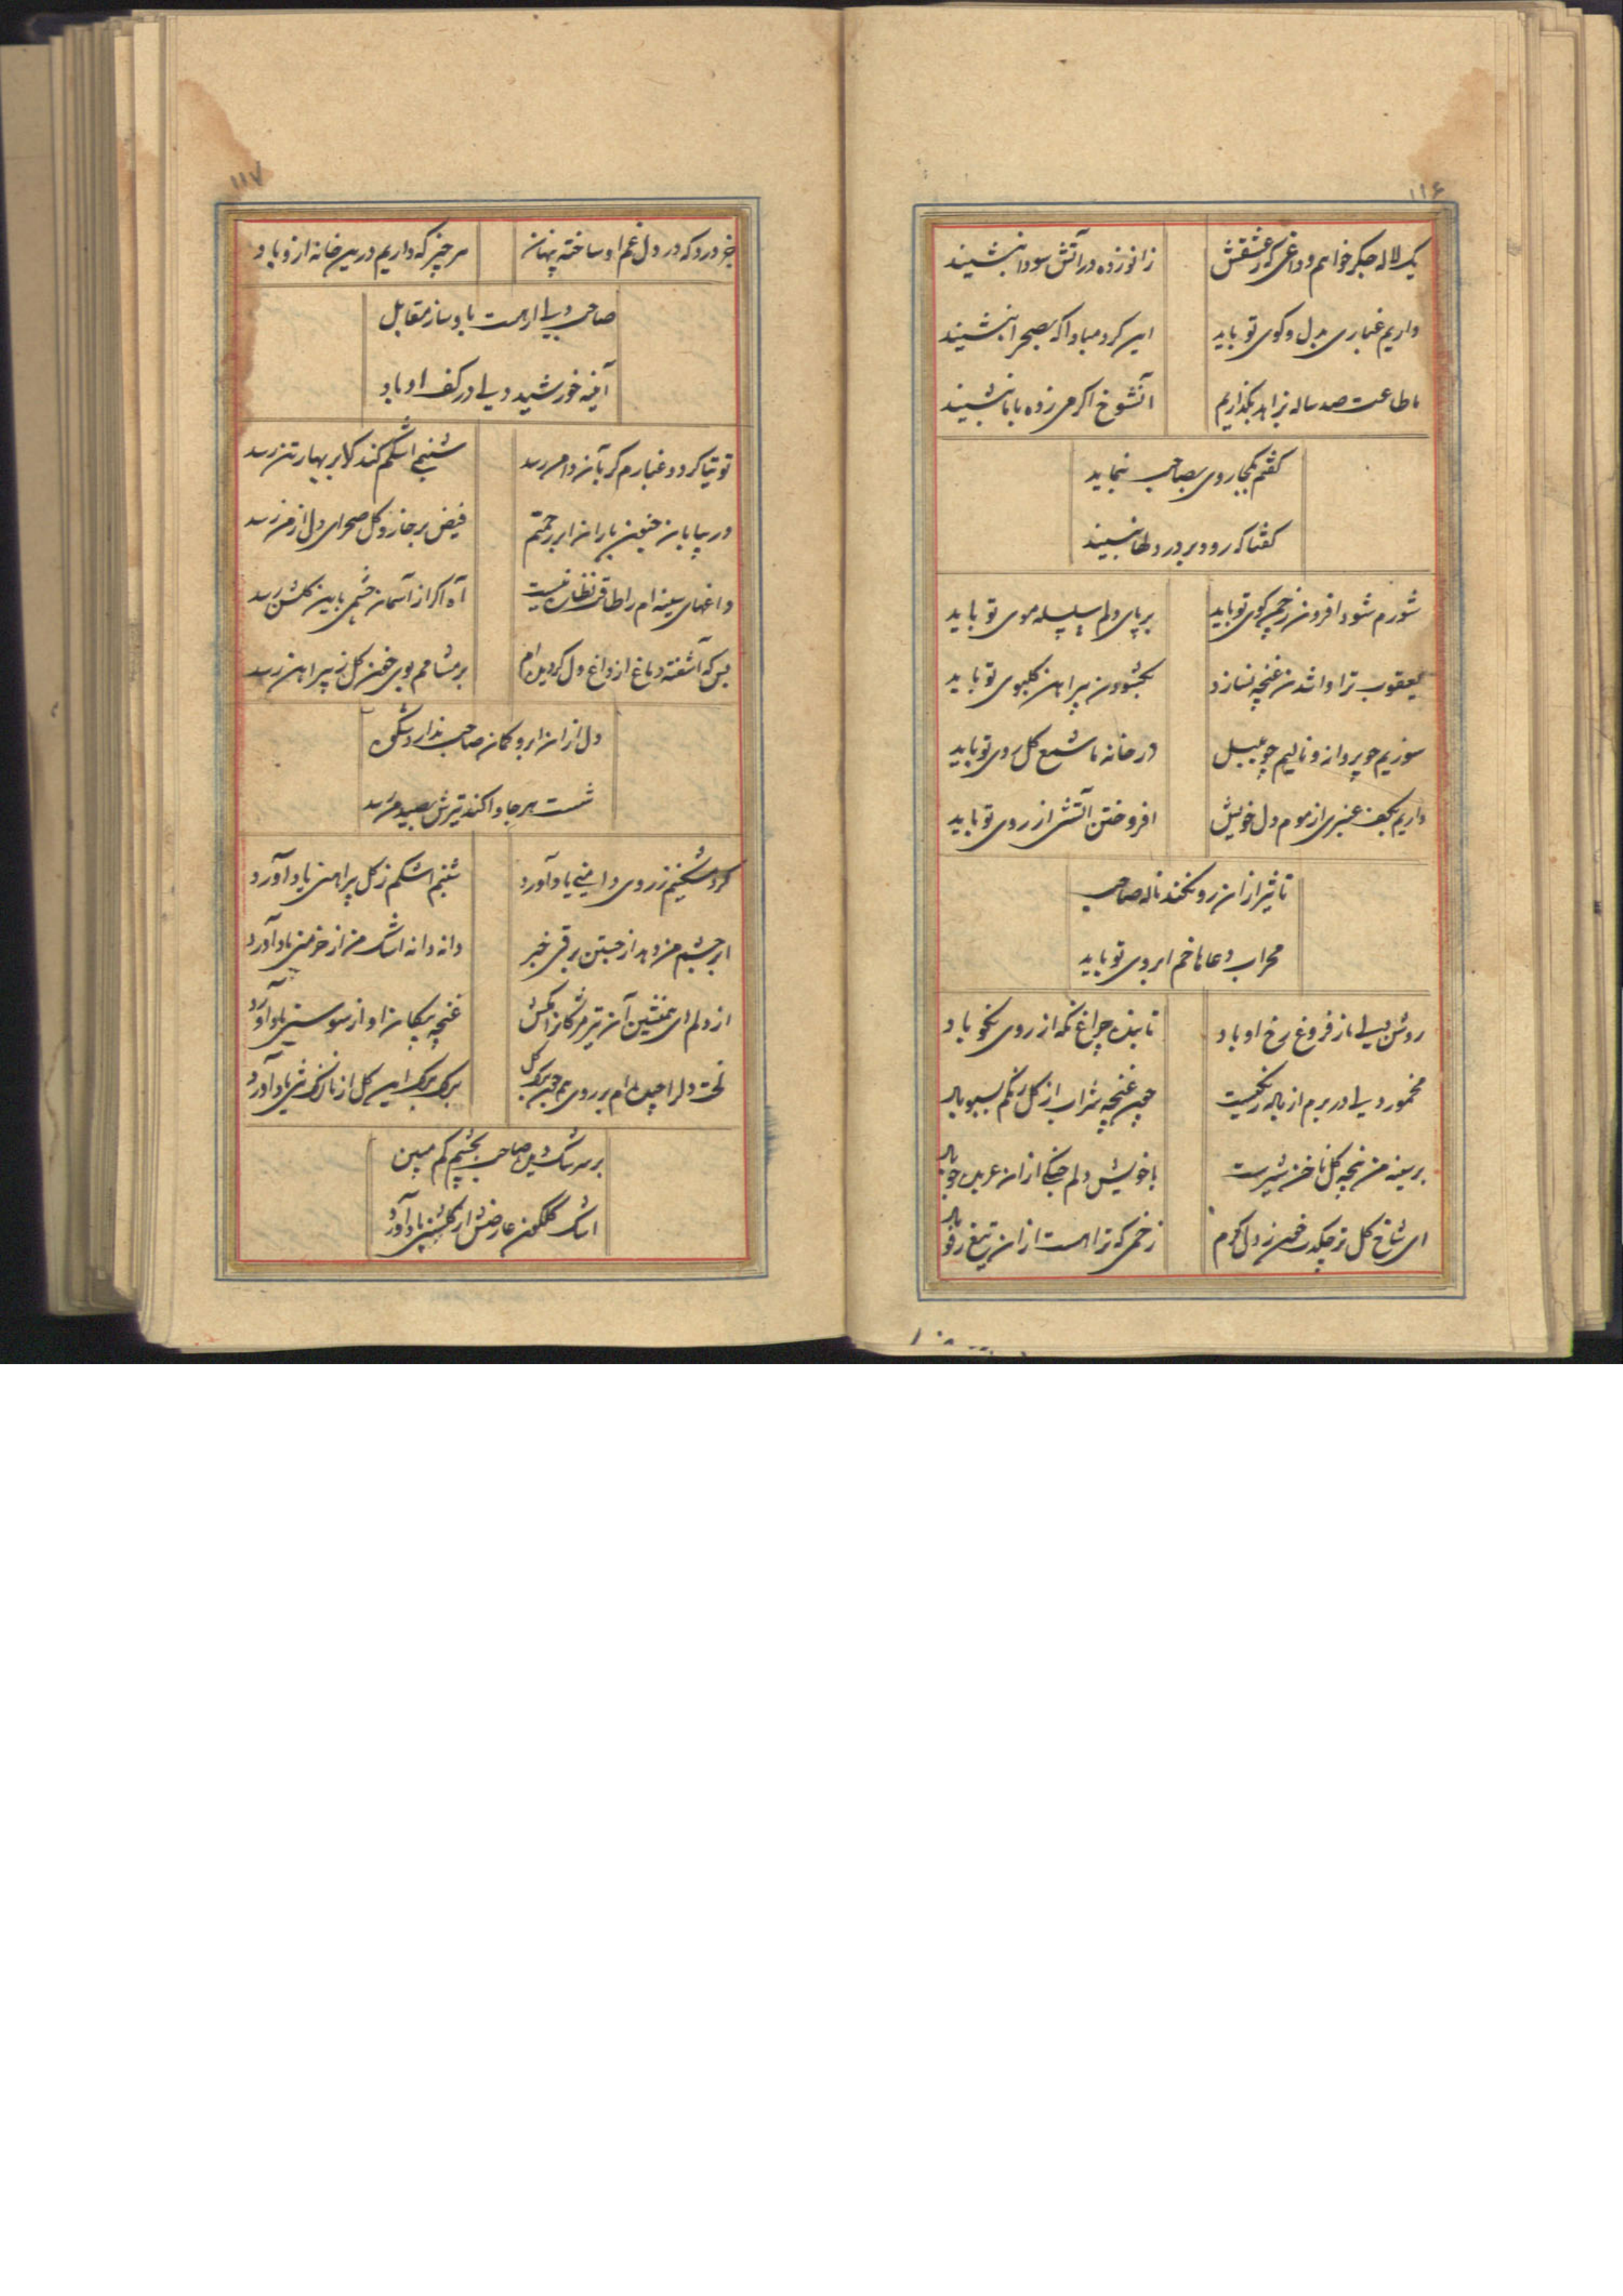 ۱۱۶
یک لاله جکر خواهم و داغی که ز عشقش
زانو زده در آتش سودا بنشیند
داریم غباری بدل و کوی تو باید
این کرد مبادا که بصحرا بنشیند
ما طاعت صد ساله بزاهد بگذاریم
آنشوخ اگر می زده با ما بنشیند
گفتم بکجا روی بصاحب بنماید
گفتا که رود بر در دلها بنشیند
شورم شود افزون ز جنون کوی تو باید
بر پای دلم سلسله موی تو باید
یعقوب ترا وا شدن غنچه نسازد
بکشودن پیراهن گلبوی تو باید
سوزیم چو پروانه و نالیم چو بلبل
در خانه ما شمع گل روی تو باید
داریم بکف عنبری از موم دل خویش
افروختن آتشی از روی تو باید
تاثیر از آن رو نکند ناله صاحب
محراب دعاها خم ابروی تو باید
روشن دلی ما ز فروغ رخ او باد
تابنده چراغ نکه از روی نکو باد
مخمور دلی در برم از باله رنگیست
چون غنچه شراب از گل رنگم بسبو باد
بر سینه من پنجه گل ناخن شیرست
با خویش دلم جنگی از آن عربده جو باد
ای شاخ گل تر چکدت خون ز دل گرم
زخمی که ترا هست از آن تیغ رفو باد
۱۱۷
جز درد که در دل غم او ساخته پنهان
هر چیز که داریم درین خانه ازو باد
صاحب دلی ار هست باو ساز مقابل
آینه خورشید دلی در کف او باد
توتیا کردد غبارم کر بآن دامن رسد
شبنمی اشکم کند کلابر بهار تن رسد
در بیابان جنون باران ابر رحمتم
فیض بر خار و گل صحرای دل از من رسد
داغهای سینه ام را طاقت نظاره نیست
آه اگر از آسمان چشمی باین گلشن رسد
بس که آشفته دماغ از داغ دل گردیده ام
بر مشامم بوی خون گل ز پیراهن رسد
دل از آن ابرو کمان صاحب ندارد شکوه
شست هر جا وا کند تیرش بصید من رسد
گرد شبخیزم ز روی دامنی یاد آورد
شبنم اشکم ز گل پیراهنی یاد آورد
ابر چشم من دهد از جستن برقی خبر
دانه دانه اشک من از خرمنی یاد آورد
از دلم ای همنشین آن تیر مژگان را مکش
غنچه پیکان او از سوسنی یاد آورد
لخت دل را چیده ام بر روی هم چون برگ گل
برگ برگ این گل از نازک تنی یاد آورد
بر سرشک دیده صاحب بچشم کم مبین
اشک گلگون عارضش از گلشنی یاد آورد